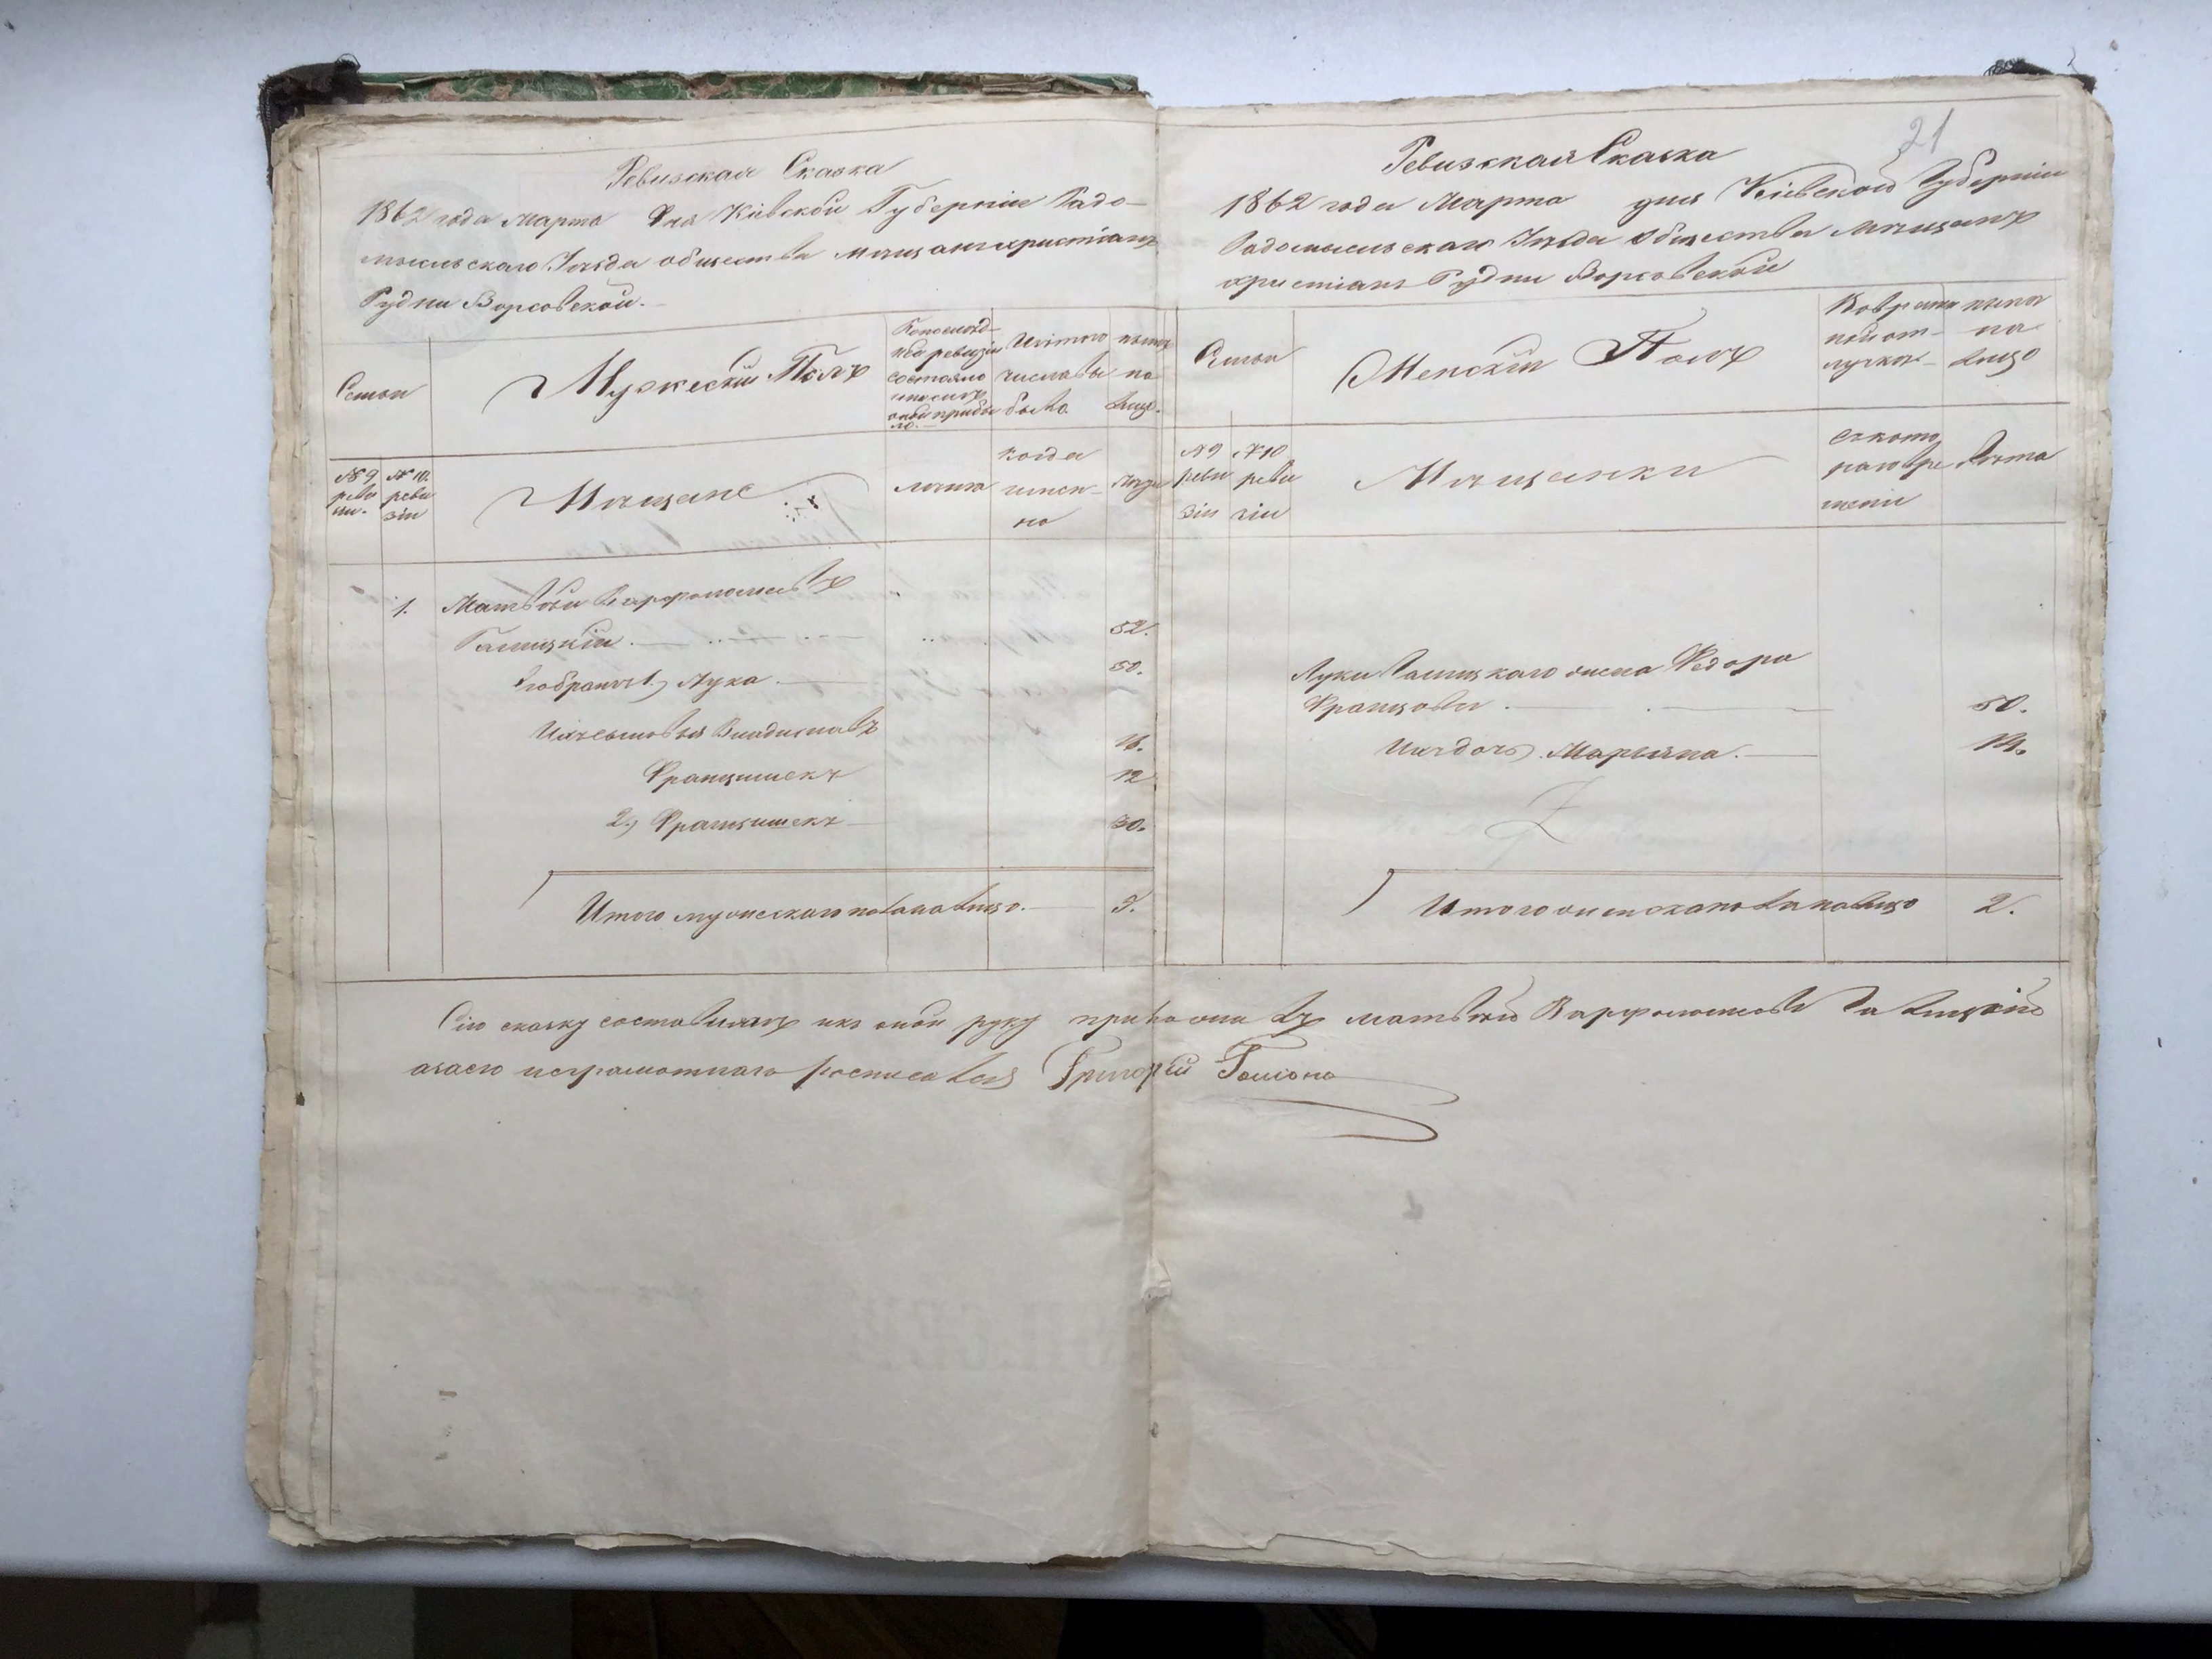 Ревизская Сказка
1862 года Марта Дня Кіевской Губерніи Радо-
мысльскаго Уѣзда общества мѣщанъ христіанъ
Рудни Ворсовской.
Семьи
Мужескій Полъ
По послѣд-
ней ревизіи
состояло
и послѣ
оной прибы
ло.
Изътого
числа вы
было
нынѣ
на
лицо.
№ 9
реви
зіи.
№ 10.
реви
зіи
Мѣщане
лѣта
когда
имен-
но
Лѣта
1. Матвѣй Варфоломеевъ
Галицкій. 52.
Его братъ 1.) Лука. 50.
Ихъ сыновья Владиславъ 18.
Францишекъ 12
2.) Францишекъ 30.
Итого мужескаго пола на лицо. 5.
21
Ревизская Сказка
1862 года Марта дня Кіевской Губерніи
Радомысльскаго Уѣзда Общества Мѣщанъ
христіанъ Рудни Ворсовской
Семьи
Женскій Полъ
Во времен
ной от-
лучкѣ
нынѣ
на
лицо
№ 9
реви
зіи
№ 10
реви
зіи
Мѣщанки
Съ кото
раго вре
мени
Лѣта
Луки Галицкаго жена Федора
Францова. 50.
Ихъ дочь Марьяна. 14.
Итого женскаго пола на лицо 2.
Сію сказку составилъ и къ оной руку приложилъ Матвѣй Варфоломеевъ Галицкій
а за его неграмотнаго росписался Григорій